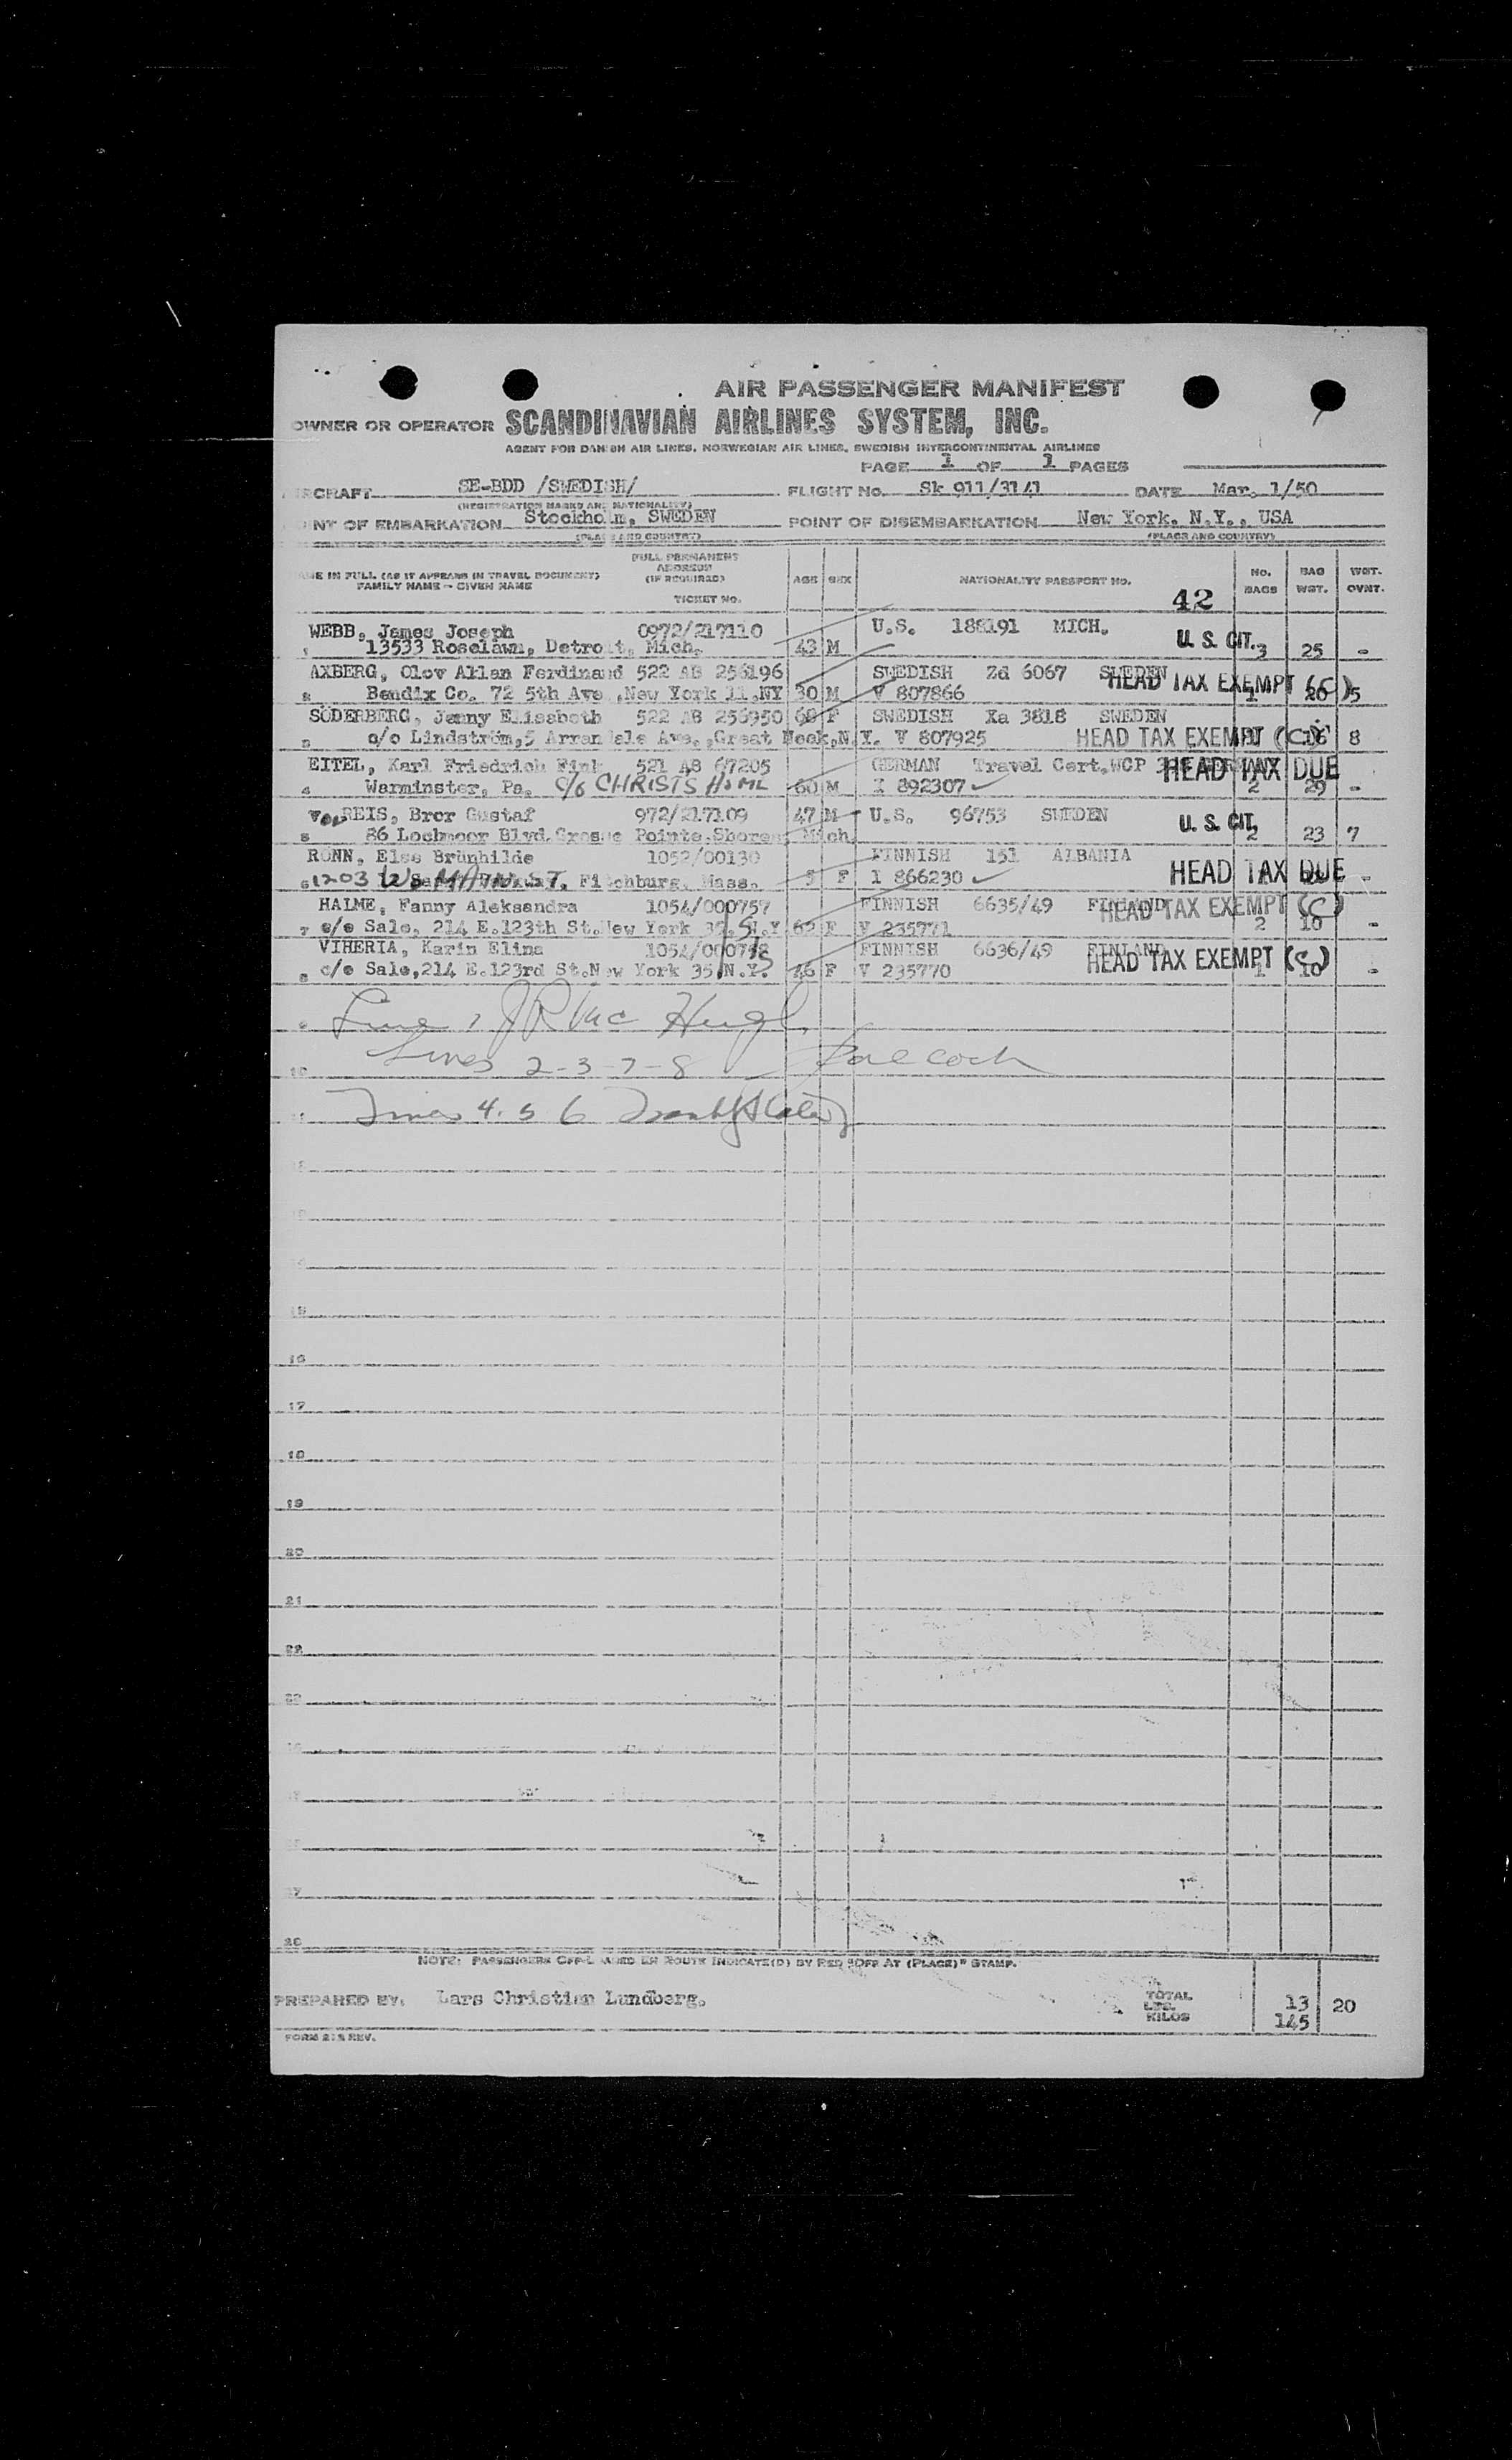 AIR PASSENGER MANIFEST
OWNER OR OPERATOR SCANDINAVIAN AIRLINES SYSTEM, INC.
AGENT FOR DANISH AIR LINES, NORWEGIAN AIR LINES, SWEDISH INTERCONTINENTAL AIRLINES
PAGE 1 OF 1 PAGES
AIRCRAFT SE-BDD /SWEDISH/ FLIGHT No. Sk 911/3141 DATE Mar. 1/50
(REGISTRATION MARKS AND NATIONALITY)
POINT OF EMBARKATION Stockholm, SWEDEN POINT OF DISEMBARKATION New York, N.Y., USA
(PLACE AND COUNTRY) (PLACE AND COUNTRY)
NAME IN FULL (AS IT APPEARS IN TRAVEL DOCUMENT) FAMILY NAME - GIVEN NAME
FULL PERMANENT ADDRESS (IF REQUIRED) TICKET No.
AGE SEX NATIONALITY PASSPORT NO. No. BAGS BAG WGT. WGT. OVNT.
42
WEBB, James Joseph 0972/217110 U.S. 188191 MICH.
13533 Roselawn, Detroit, Mich. 43 M U. S. CIT. 3 25 -
AXBERG, Olov Allan Ferdinand 522 AB 256196 SWEDISH Zd 6067 SWEDEN
2 Bendix Co. 72 5th Ave.,New York 11,NY 30 M V 807866 HEAD TAX EXEMPT (C) 1 20 5
SÖDERBERG, Jenny Elisabeth 522 AB 256950 68 F SWEDISH Xa 3818 SWEDEN
3 c/o Lindström,5 Arrandale Ave.,Great Neck,N.Y. V 807925 HEAD TAX EXEMPT (C) 8
EITEL, Karl Friedrich Fink 521 AB 67205 GERMAN Travel Cert.WCP
4 Warminster, Pa. C/O CHRISTS HOME 60 M I 892307 HEAD TAX DUE 2 29 -
REIS, Bror Gustaf 972/217109 47 M U.S. 96753 SWEDEN
5 86 Lochmoor Blvd.Grosse Pointe.Shores, Mich. U. S. CIT. 2 23 7
RÖNN, Else Brünhilde 1052/00130 FINNISH 151 ALBANIA
6 1203 MAIN ST. Fitchburg, Mass. F I 866230 HEAD TAX DUE -
HALME, Fanny Aleksandra 1054/000757 FINNISH 6635/49 FINLAND
7 c/o Salo, 214 E.123th St.New York 35, N.Y 62 F V 235771 HEAD TAX EXEMPT (C) 2 10 -
VIHERIA, Karin Elina 1054/000758 FINNISH 6636/49 FINLAND
8 c/o Salo,214 E.123rd St.New York 35,N.Y. 46 F V 235770 HEAD TAX EXEMPT (C) 1 10 -
Line 1
10 Lines 2-3-7-8
Lines 4.5 6
15
16
17
18
19
20
21
22
23
28
NOTE: PASSENGERS OFF-LOADED EN ROUTE INDICATE(D) BY RED "OFF AT (PLACE)" STAMP.
PREPARED BY: Lars Christian Lundberg. TOTAL LBS. KILOS 13 145 20
FORM 218 REV.